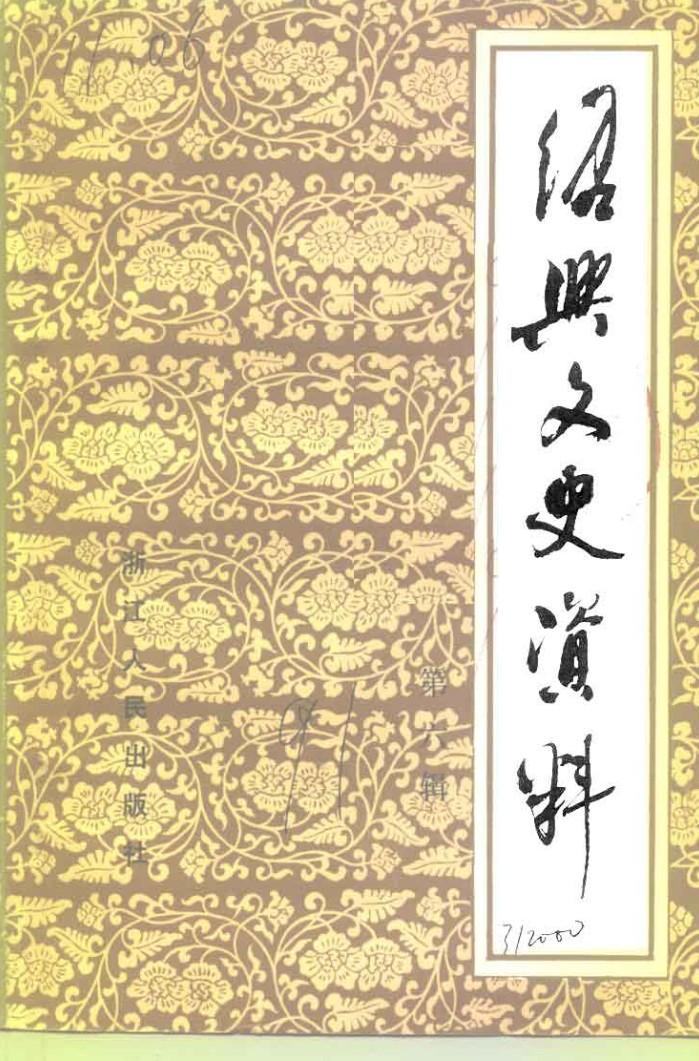 绍興文史資料
第六辑
浙江人民出版社
11.06
91
312000